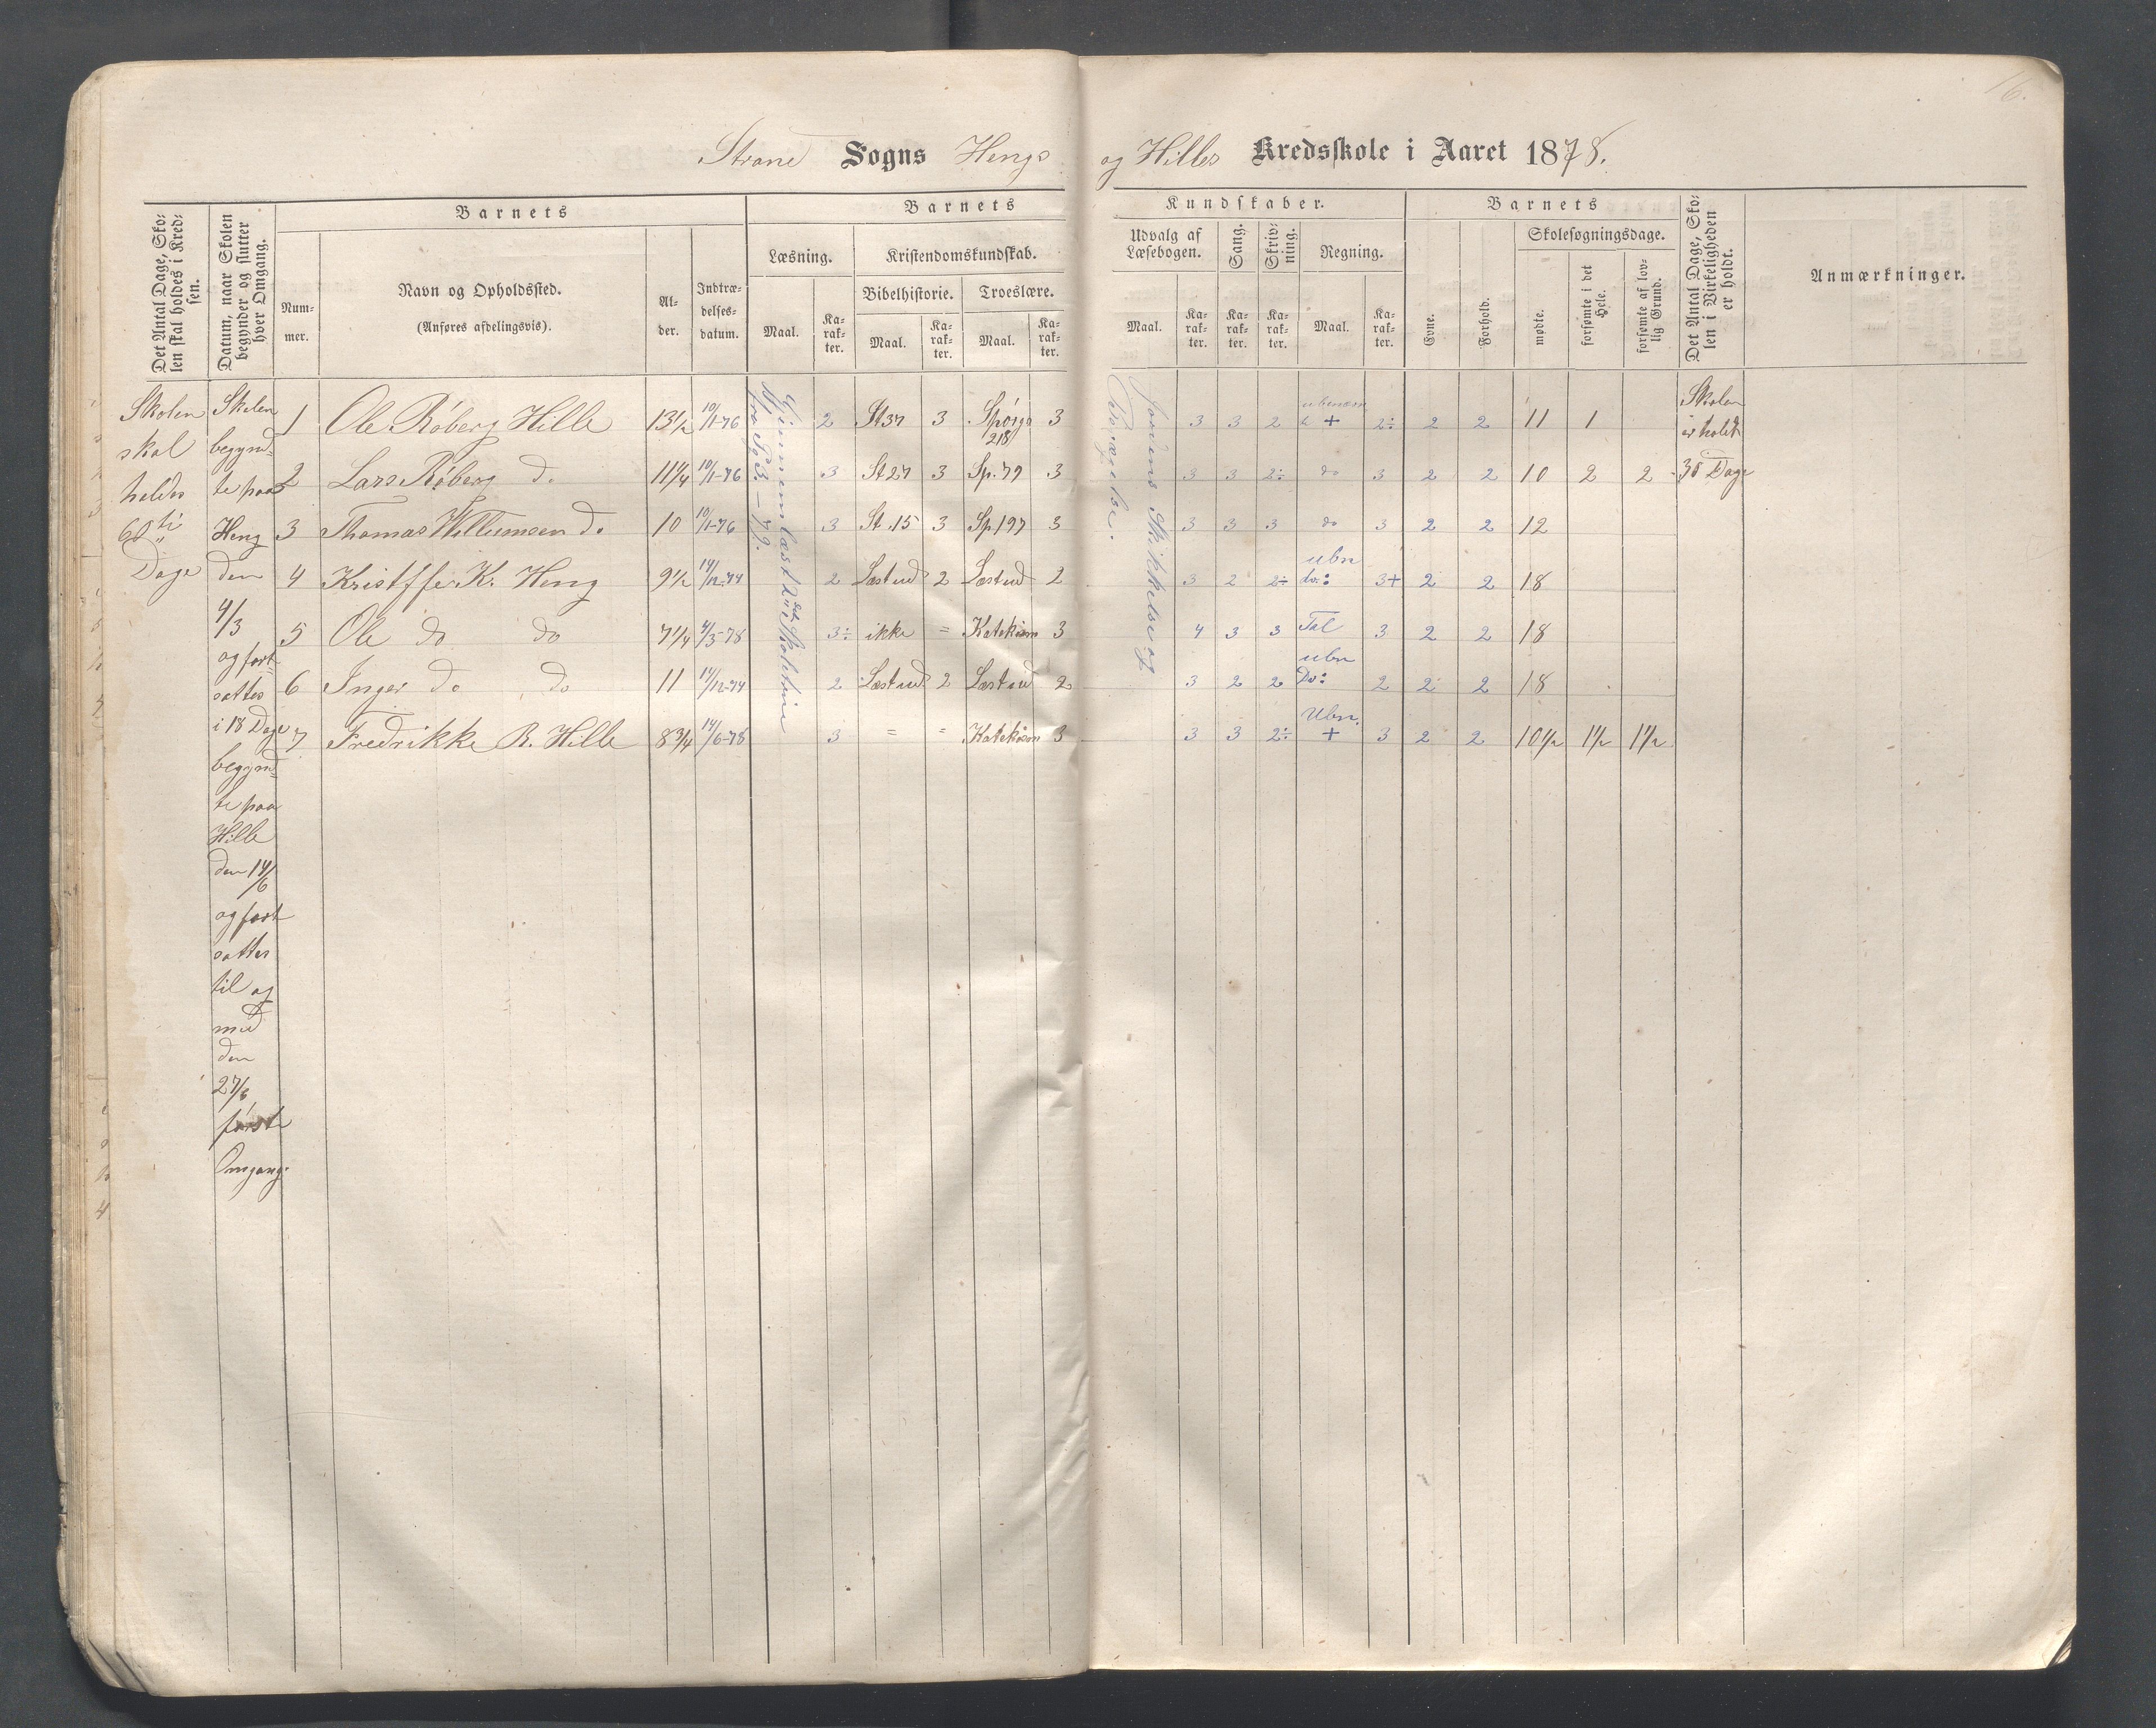 16.
Strand Sogns Hengs og Hilles Kredsskole i Aaret 1878.
Det Antal Dage, Sko-
len skal holdes i Kred-
sen.
Datum, naar Skolen
begynder og slutter
hver Omgang.
Barnets
Num-
mer.
Navn og Opholdssted.
(Anføres afdelingsvis).
Al-
der.
Indtræ-
delses-
datum.
Barnets
Læsning.
Maal.
Ka-
rak-
ter.
Kristendomskundskab.
Bibelhistorie.
Maal.
Ka-
rak-
ter.
Troeslære.
Maal.
Ka-
rak-
ter.
Kundskaber.
Udvalg af
Læsebogen.
Maal.
Ka-
rak-
ter.
Sang.
Ka-
rak-
ter.
Skriv-
ning.
Ka-
rak-
ter.
Regning.
Maal.
Ka-
rak-
ter.
Barnets
Evne.
Forhold.
Skolesøgningsdage.
mødte.
forsømte i det
Hele.
forsømte af lov-
lig Grund.
Det Antal Dage, Sko-
len i Virkeligheden
er holdt.
Anmærkninger.
Skolen
skal
holdes
60 ti
Dage
Skolen
begynd-
te paa
Heng
den
4/3
og fort-
sattes
i 18 Dage
begynd-
te paa
Hille
den 14/6
og fort
sattes
til og
med
den
27/6
første
Omgang.
Gjennemlæst 2den Skoletrin
fra P. 3 - 79.
Jordens Skikkelse og
Bevægelse.
1 Ole Röberg Hille 13 1/2 10/1-76 2 St 37 3 Spörgs 218 3 3 3 2 ubenævn + 2÷ 2 2 11 1
2 Lars Röberg do 11 1/4 10/1-76 3 St 27 3 Sp. 79 3 3 3 2÷ do 3 2 2 10 2 2
3 Thomas Willumsen do 10 10/1-76 3 St. 15 3 Sp 197 3 3 3 3 do 3 2 2 12
4 Kristffer K. Heng 9 1/2 14/12-74 2 Læst ud 2 Læst ud 2 3 2 2÷ ubn dv: 3+ 2 2 18
5 Ole do do 7 1/4 4/3-78 3÷ ikke = Katekism 3 4 3 3 Tal 3 2 2 18
6 Inger do do 11 14/12-74 2 Læst ud 2 Læst ud 2 3 2 2 ubn Dv: 2 2 2 18
7 Fredrikke R. Hille 8 3/4 14/6-78 3 = = Katekism 3 3 3 2÷ Ubn. + 3 2 2 10 1/2 1 1/2 1 1/2
Skolen
er holdt
30 Dage